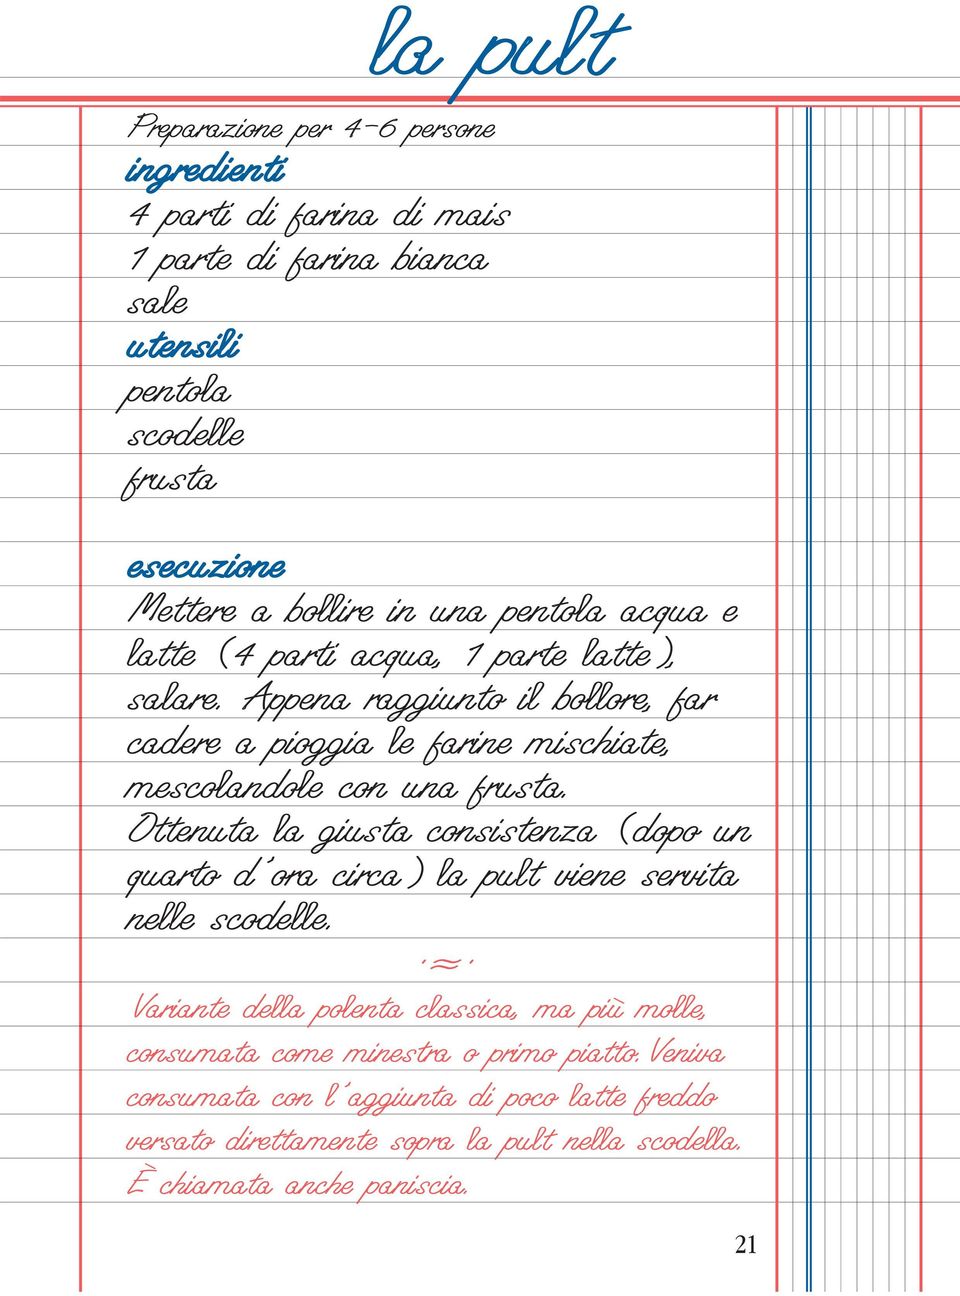 la pult
Preparazione per 4-6 persone
ingredienti
4 parti di farina di mais
1 parte di farina bianca
sale
utensili
pentola
scodelle
frusta
esecuzione
Mettere a bollire in una pentola acqua e
latte (4 parti acqua, 1 parte latte),
salare. Appena raggiunto il bollore, far
cadere a pioggia le farine mischiate,
mescolandole con una frusta.
Ottenuta la giusta consistenza (dopo un
quarto d'ora circa) la pult viene servita
nelle scodelle.
·≈·
Variante della polenta classica, ma più molle,
consumata come minestra o primo piatto. Veniva
consumata con l'aggiunta di poco latte freddo
versato direttamente sopra la pult nella scodella.
È chiamata anche paniscia.
21